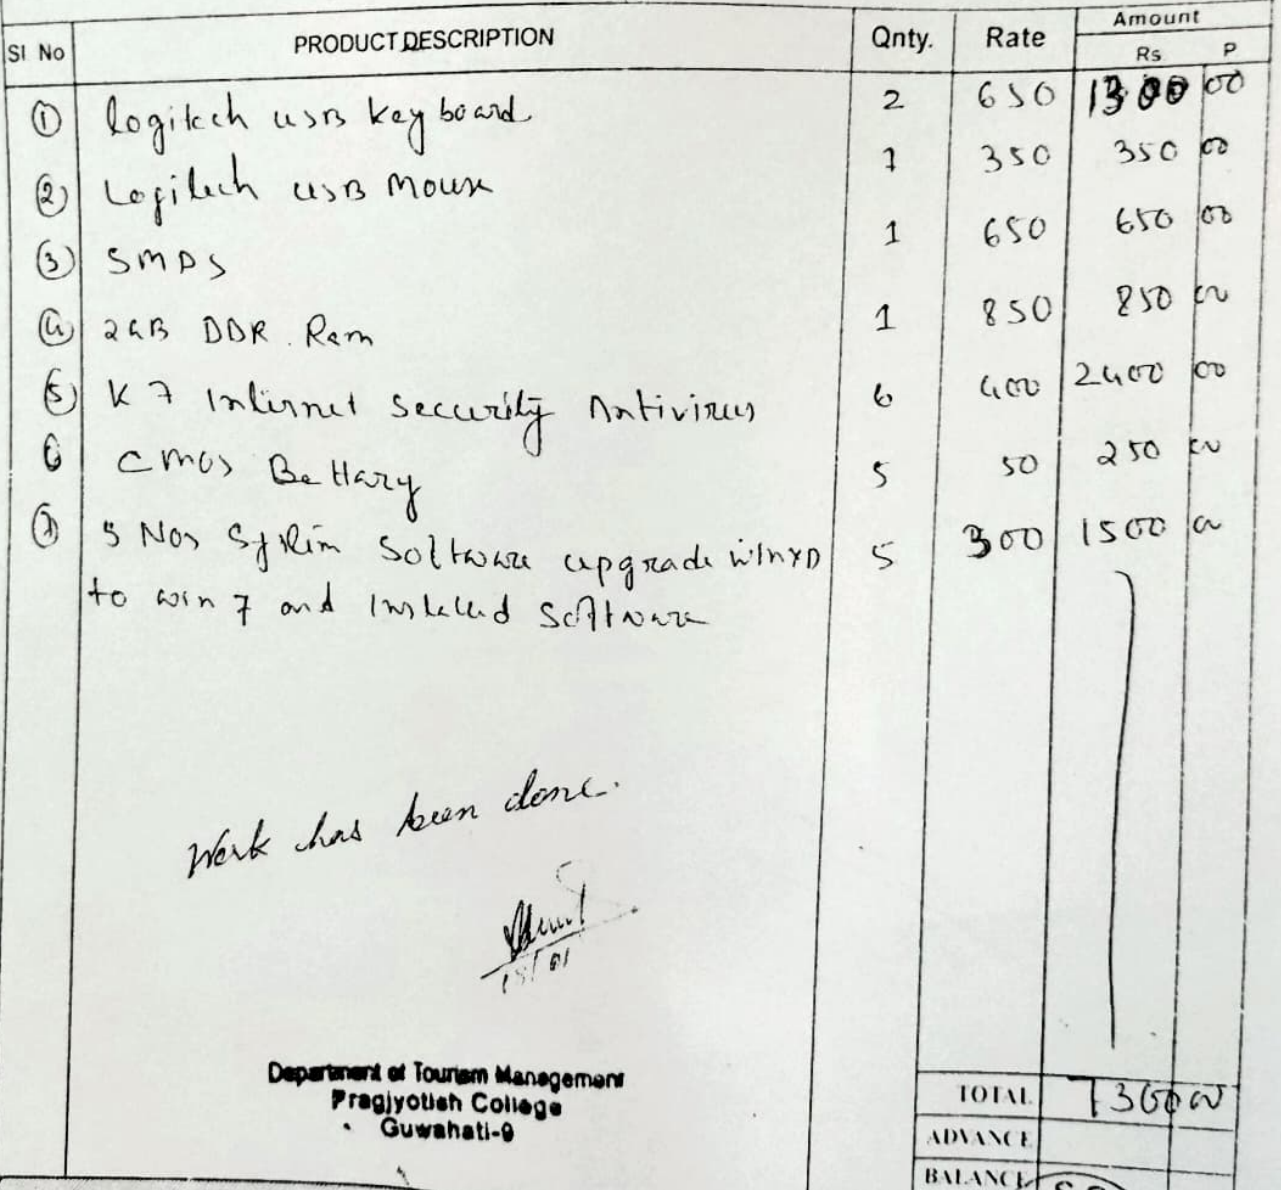 Sl No PRODUCT DESCRIPTION Qnty. Rate Amount
Rs P
① Logitech USB Keyboard 2 650 1300 00
② Logitech USB Mouse 1 350 350 00
③ SMPS 1 650 650 00
④ 2GB DDR Ram 1 850 850 00
⑤ K7 Internet Security Antivirus 6 400 2400 00
6 CMOS Battary 5 50 250 00
⑦ 5 Nos System Software upgrade winxp 5 300 1500 00
to win 7 and Installed Software
Work has been done.
Department of Tourism Management
Pragjyotish College
Guwahati-9
TOTAL 7300 00
ADVANCE
BALANCE